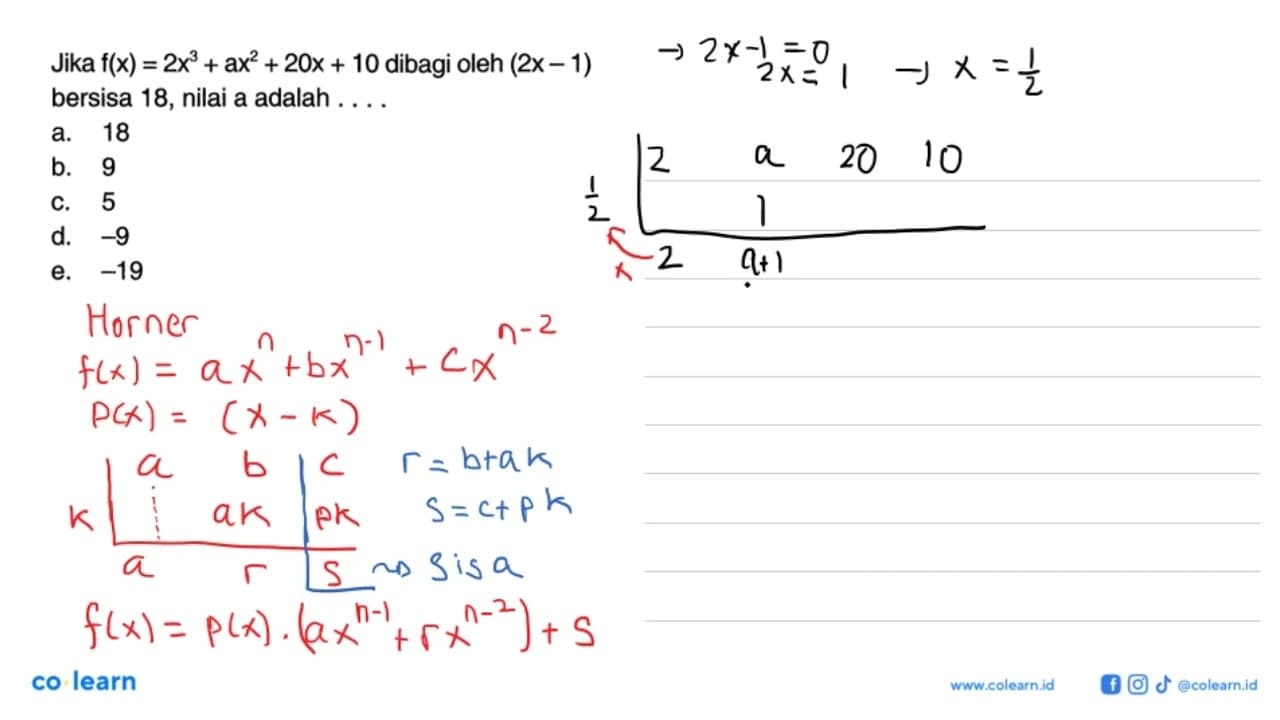 Jika f(x) = 2x³ + ax² + 20x + 10 dibagi oleh (2x – 1)
bersisa 18, nilai a adalah . . . .
a. 18
b. 9
c. 5
d. –9
e. –19
→ 2x-1 = 0
2x = 1 → x = 1/2
2 a 20 10
1/2 1
x 2 a+1
Horner
f(x) = ax^n + bx^(n-1) + cx^(n-2)
P(x) = (x - k)
a b c r = b+ak
k ak pk s = c+pk
a r s ~> sisa
f(x) = p(x).(ax^(n-1) + rx^(n-2)) + s
co learn
www.colearn.id
@colearn.id